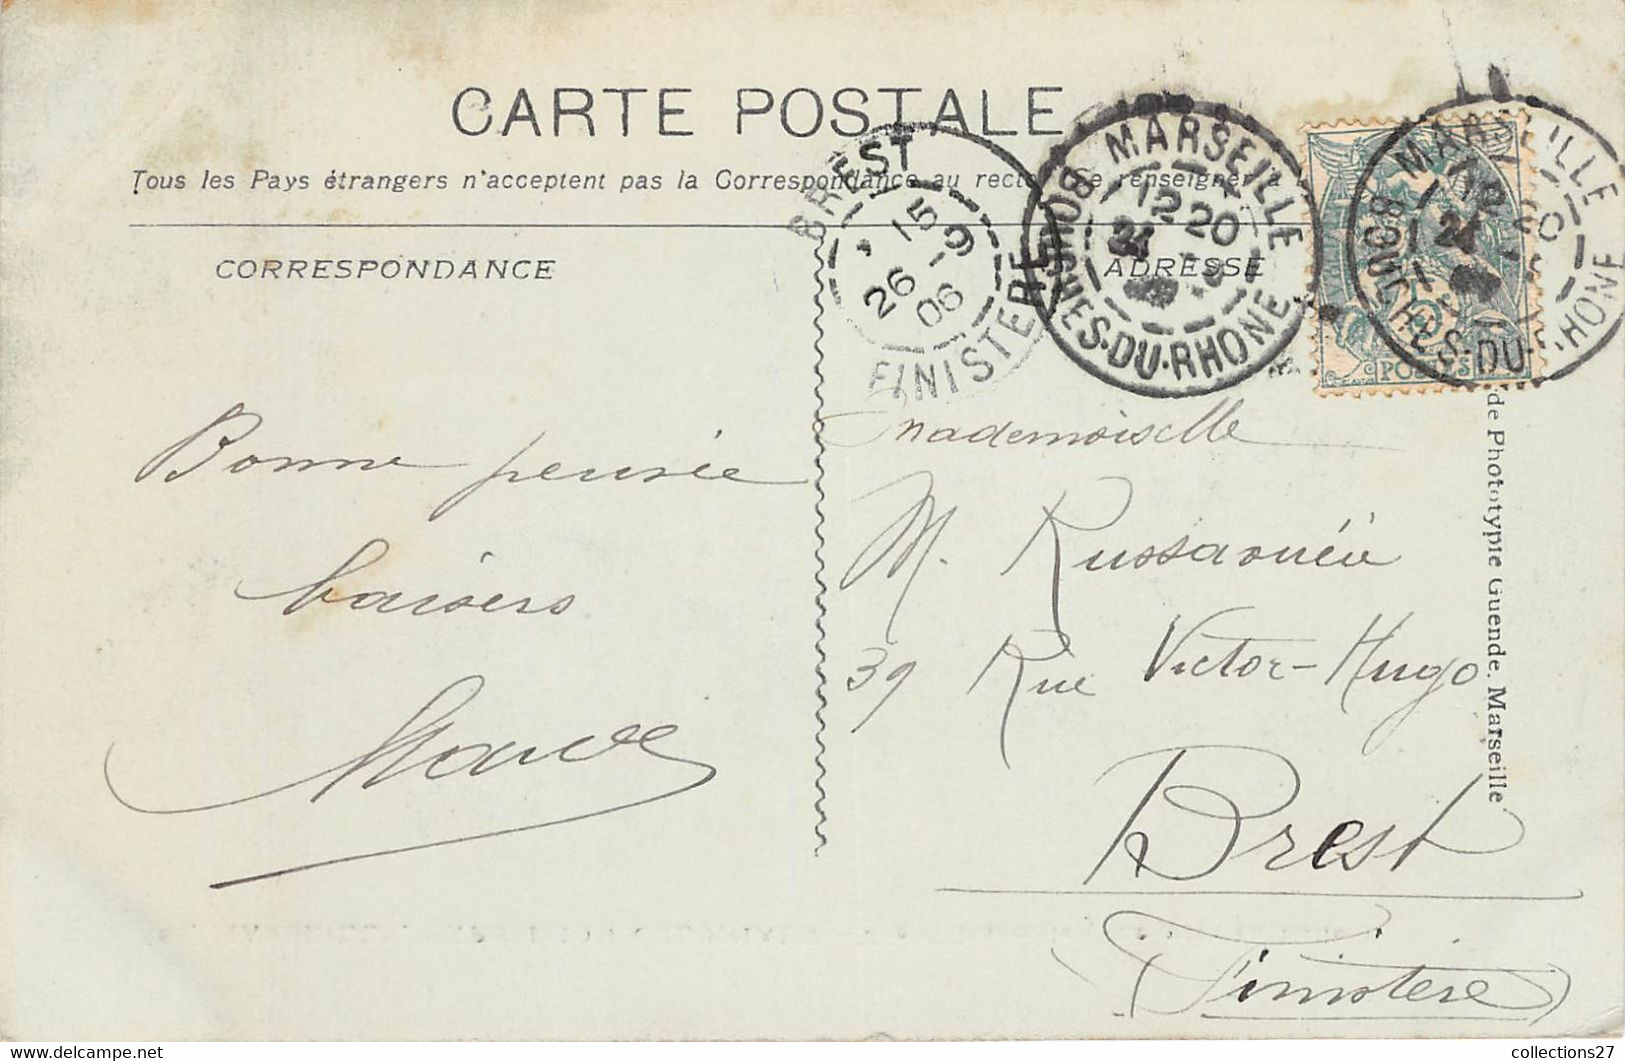 CARTE POSTALE
Tous les Pays étrangers n'acceptent pas la Correspondance au recto Se renseigner à
CORRESPONDANCE
ADRESSE
BREST
15 -9
26
06
FINISTERE
MARSEILLE
12 20
24
BOUCHES-DU-RHONE
MARSEILLE
24
BOUCHES-DU-RHONE
POSTES
Bonne pensée
baisers
Mademoiselle
M.
39 Rue Victor-Hugo
Brest
Finistère
de Phototypie Guende, Marseille
collections27